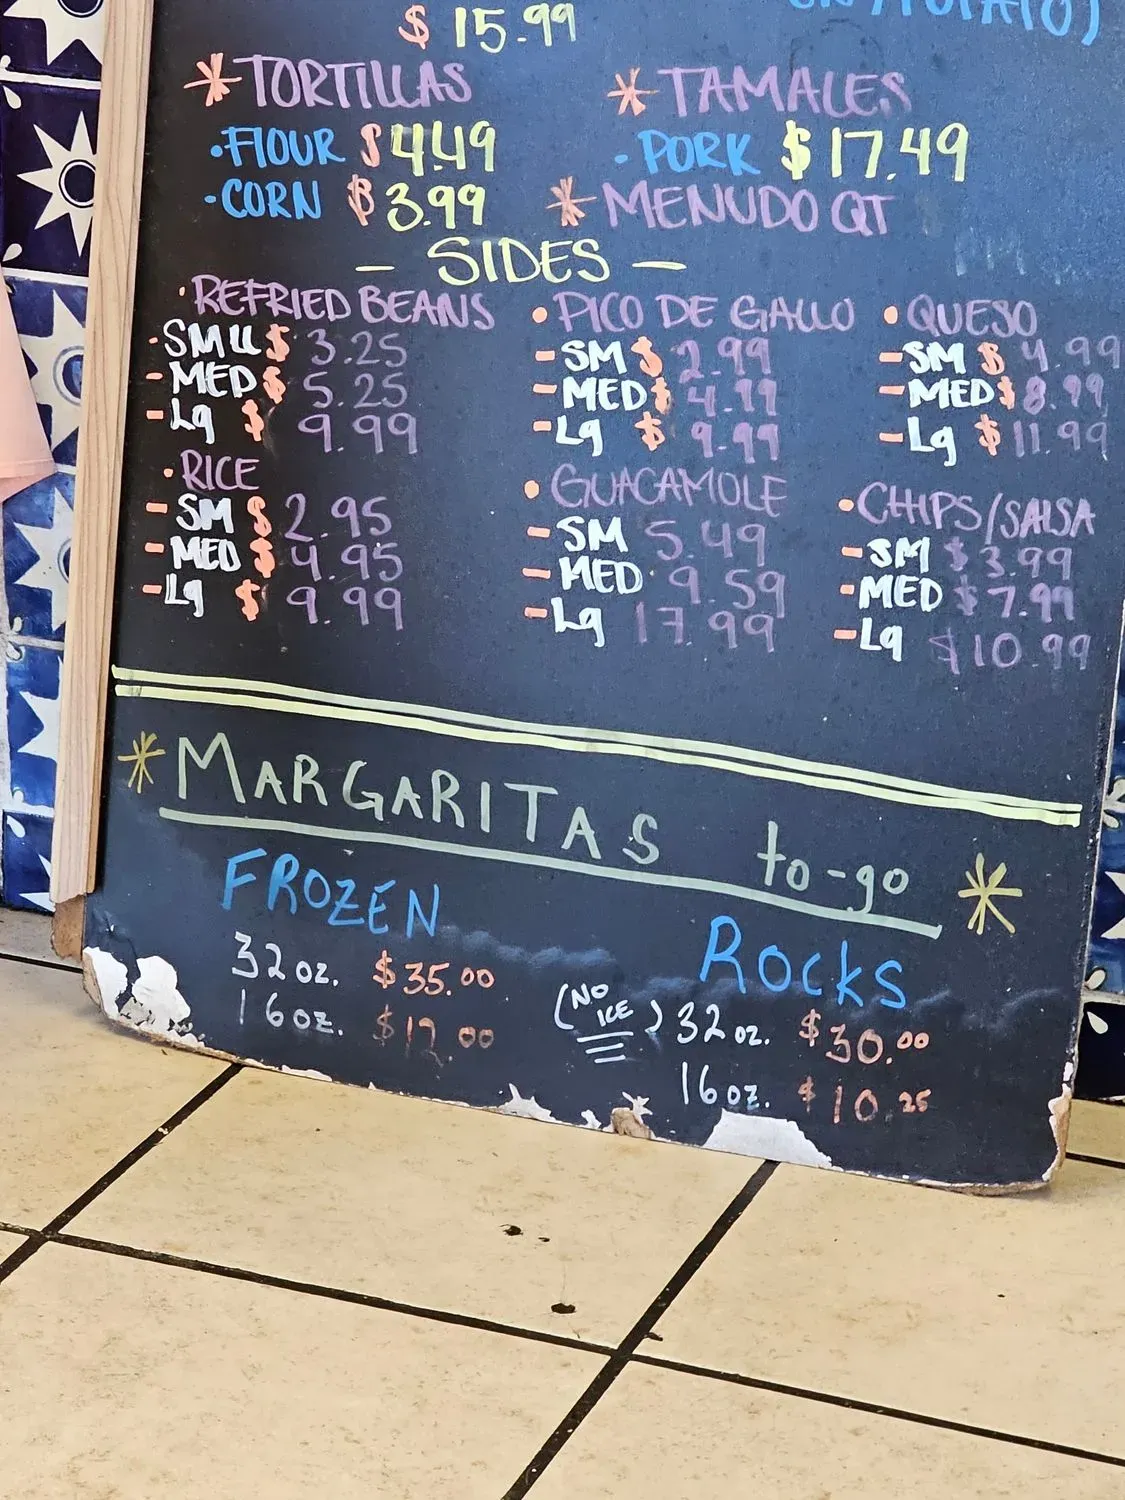 $ 15.99
*TORTILLAS
·FLOUR $4.49
·CORN $3.99
*TAMALES
·PORK $17.49
*MENUDO QT
— SIDES —
·REFRIED BEANS
·SMLL $ 3.25
-MED $ 5.25
-Lg $ 9.99
·RICE
-SM $ 2.95
-MED $ 4.95
-Lg $ 9.99
·PICO DE GALLO
-SM $ 2.99
-MED $ 4.99
-Lg $ 9.99
·GUACAMOLE
-SM 5.49
-MED 9.59
-Lg 17.99
·QUESO
-SM $ 4.99
-MED $ 8.99
-Lg $ 11.99
·CHIPS/SALSA
-SM $3.99
-MED $7.99
-Lg $10.99
*MARGARITAS to-go *
FROZEN
32 oz. $35.00
16 oz. $12.00
ROCKS
(NO ICE) 32 oz. $30.00
16 oz. $10.25